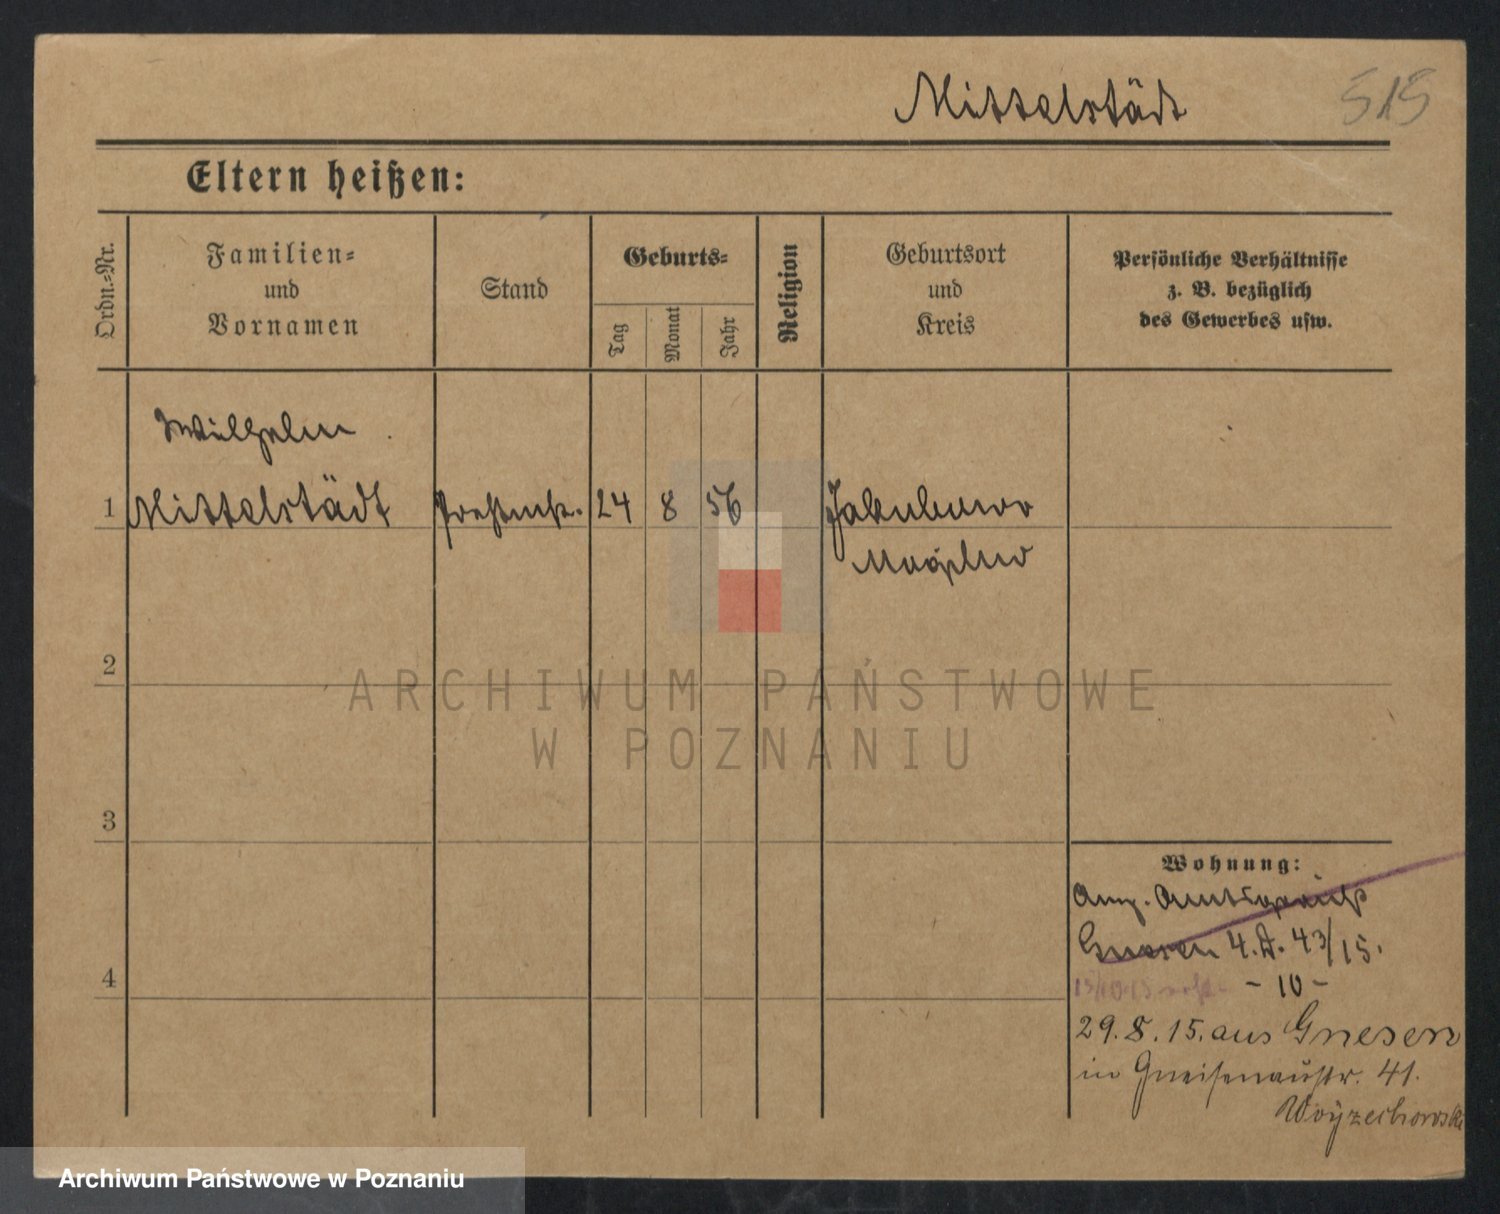 Mittelstädt
515
Eltern heißen:
Ordn.-Nr.
Familien-
und
Vornamen
Stand
Geburts-
Tag
Monat
Jahr
Religion
Geburtsort
und
Kreis
Persönliche Verhältnisse
z. B. bezüglich
des Gewerbes usw.
Wilhelm
1 Mittelstädt 24 8 56 Jakubowo
Mogilno
2
ARCHIWUM PAŃSTWOWE
W POZNANIU
3
Wohnung:
Anz. Amtsgericht
Gnesen 4. D. 43/15.
4
- 10 -
29.8.15. aus Gnesen
in Gneisenaustr. 41.
Woyzechowski
Archiwum Państwowe w Poznaniu